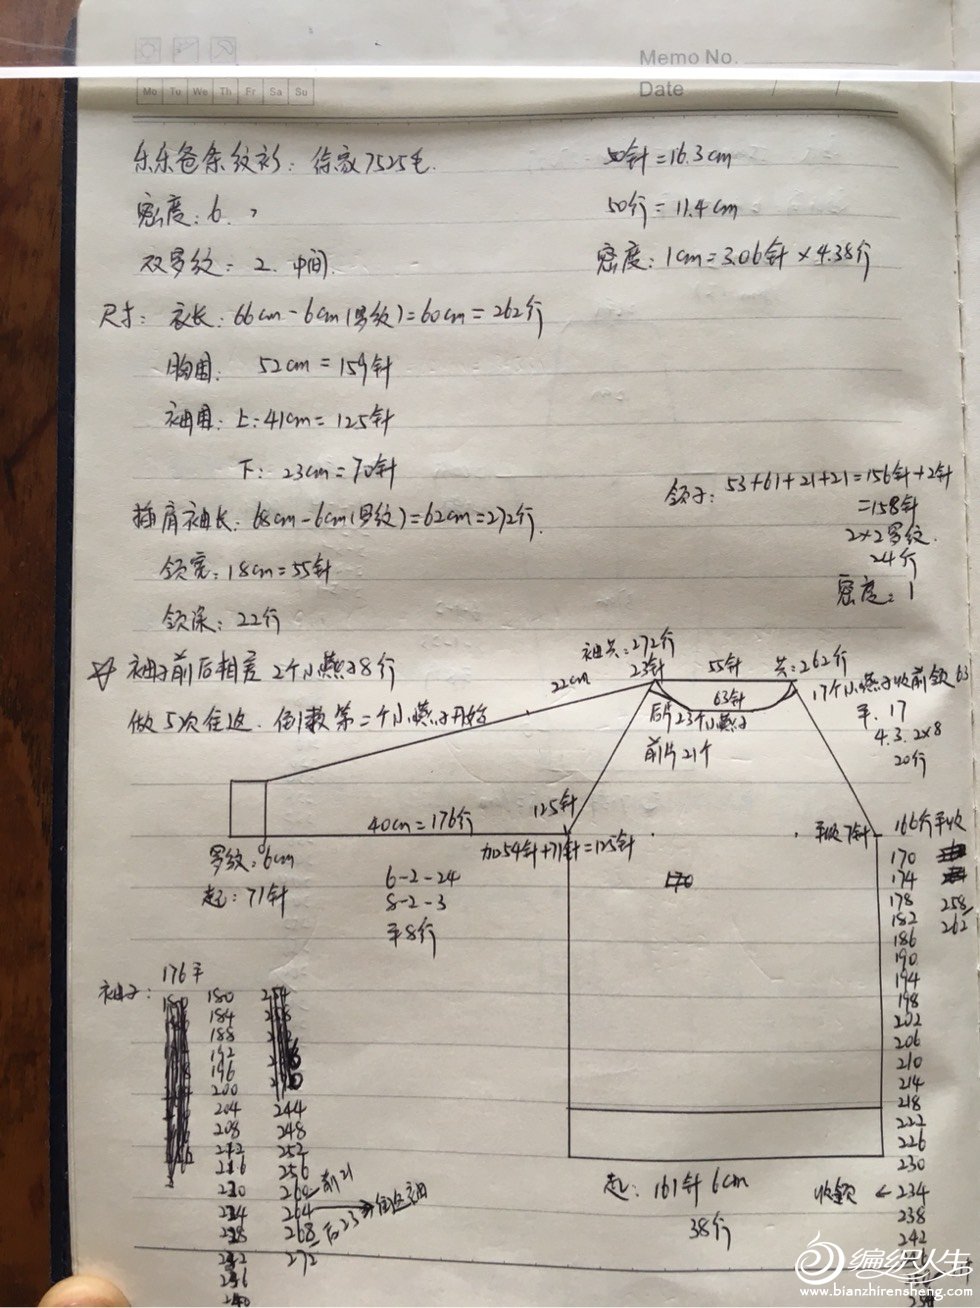 Memo No.
Date / /
Mo Tu We Th Fr Sa Su
乐乐爸条纹衫: 徐家7525毛.
50针=16.3cm
密度: 6.
50行=11.4cm
双罗纹: 2. 中间.
密度: 1cm=3.06针×4.38行
尺寸: 衣长: 66cm-6cm(罗纹)=60cm=262行
胸围: 52cm=159针
袖围: 上:41cm=125针
下: 23cm=70针
领子: 53+61+21+21=156针+2针
=158针
2×2罗纹.
24行
密度: 1
插肩袖长: 68cm-6cm(罗纹)=62cm=272行.
领宽: 18cm=55针
领深: 22行
☆ 袖子前后相差 2个小燕子8行
做5次往返. 倒数第二个小燕子开始
袖共:272行
22cm
23针
55针
共:262行
63针
后片23个小燕子
前片21个
17个小燕子收前领63
平. 17
4.3.2×8
20行
40cm=176行
125针
加54针+71针=125针
平收7针
罗纹:6cm
起: 71针
6-2-24
8-2-3
平8行
170
166行平收
170
174
178
182
186
190
194
198
202
206
210
214
218
222
226
230
收领 ← 234
238
242
258
262
起: 161针 6cm
38行
袖子:
176平
180
184
188
192
196
200
204
208
212
216
220
224
228
232
236
240
244
248
252
256
260 前21
264
268 后23
272
编织人生
www.bianzhirensheng.com